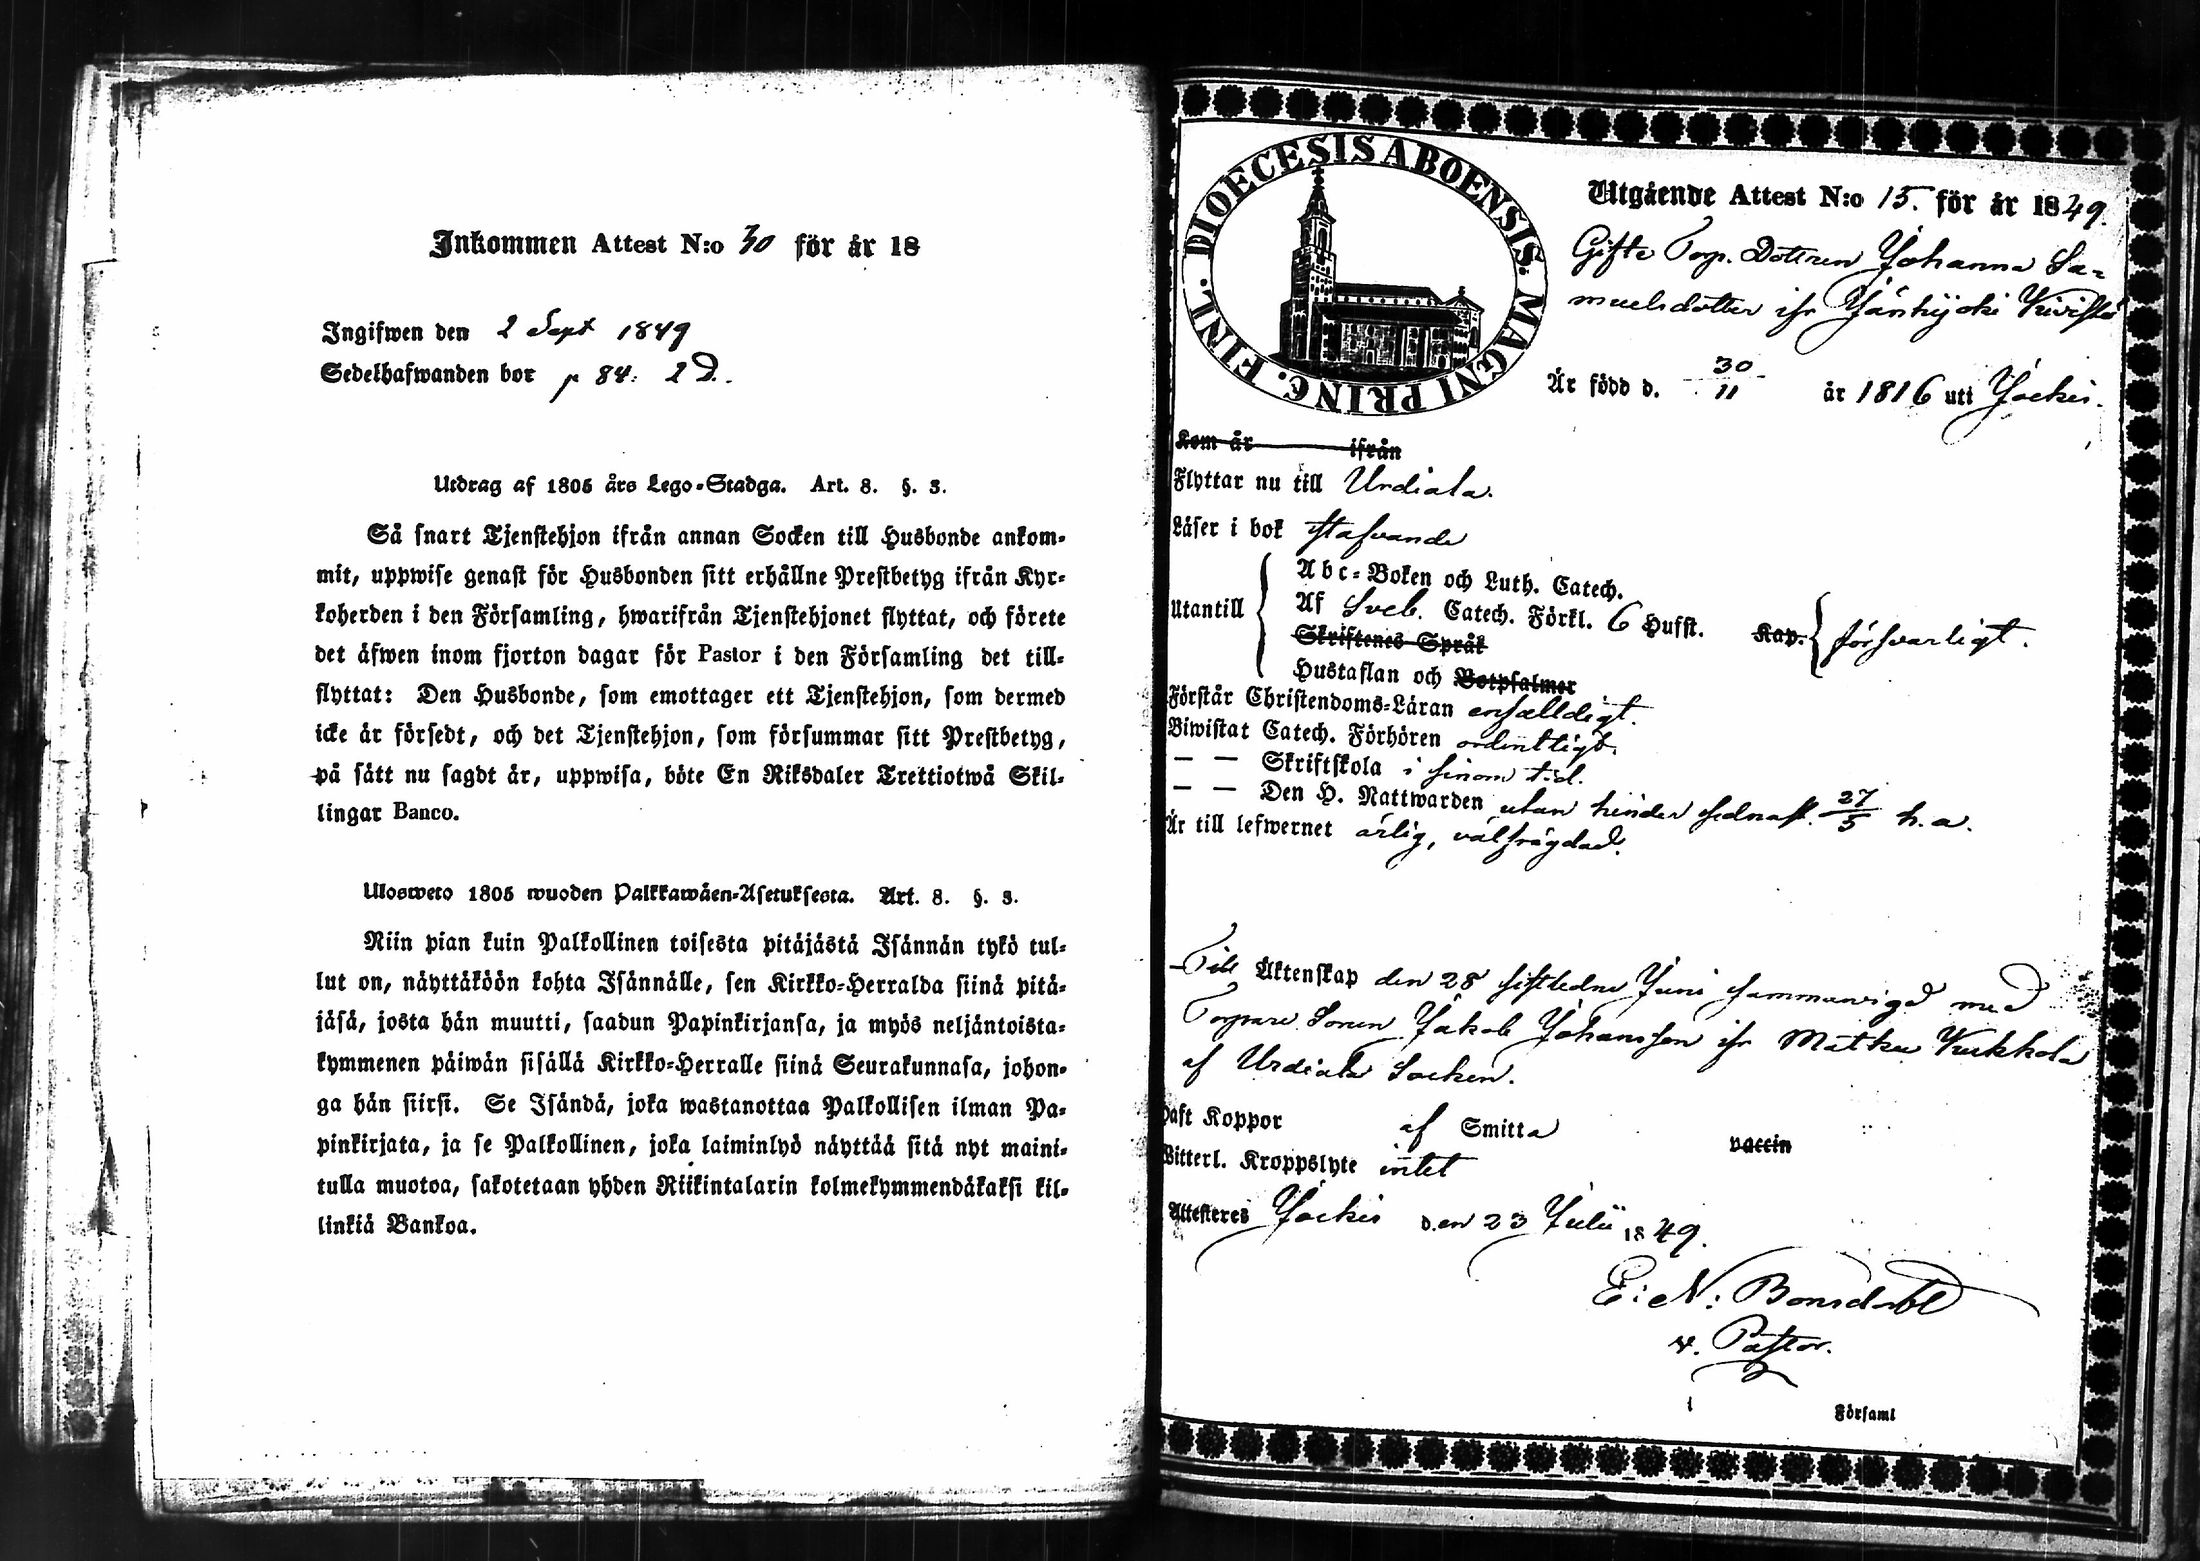 Inkommen Attest N:o 30 för år 18
Ingifwen den 2 Sept 1849
Sedelhafwanden bor p 84. 2 D.
Utdrag af 1805 års Lego-Stadga. Art. 8. §. 3.
Så snart Tjenstehjon ifrån annan Socken till Husbonde ankom-
mit, uppwise genast för Husbonden sitt erhållne Prestbetyg ifrån Kyr-
koherden i den Församling, hwarifrån Tjenstehjonet flyttat, och förete
det äfwen inom fjorton dagar för Pastor i den Församling det till-
flyttat: Den Husbonde, som emottager ett Tjenstehjon, som dermed
icke är försedt, och det Tjenstehjon, som försummar sitt Prestbetyg,
på sätt nu sagdt är, uppwisa, böte En Riksdaler Trettiotwå Skil-
lingar Banco.
Ulosweto 1805 wuoden Palkkawäen-Asetuksesta. Art. 8. §. 3.
Niin pian kuin Palkollinen toisesta pitäjästä Isännän tykö tul-
lut on, näyttäköön kohta Isännälle, sen Kirkko-Herralda siinä pitä-
jäsä, josta hän muutti, saadun Papinkirjansa, ja myös neljäntoista-
kymmenen päiwän sisällä Kirkko-Herralle siinä Seurakunnasa, johon-
ga hän siirsi. Se Isändä, joka wastanottaa Palkollisen ilman Pa-
pinkirjata, ja se Palkollinen, joka laiminlyö näyttää sitä nyt maini-
tulla muotoa, sakotetaan yhden Riikintalarin kolmekymmendäkaksi kil-
linkiä Bankoa.
DIOECESIS ABOENSIS. MAGNI PRINC. FINL.
Utgående Attest N:o 15. för år 1849.
Gifte Torp. Dottren Johanna Sa-
muelsdotter ifr Jänhijoki Kivistö
Är född d. 30/11 år 1816 uti Jockis.
Kom år ifrån
Flyttar nu till Urdiala.
Läser i bok stafvande
Utantill
Abc-Boken och Luth. Catech.
Af Sveb. Catech. Förkl. 6 Hufst. Kap. försvarligt.
Skriftenes Språk
Hustaflan och Botpsalmer
Förstår Christendoms-Läran enfalldigt.
Biwistat Catech. Förhören ordentligt.
— — Skriftskola i sinom tid.
— — Den H. Nattwarden utan hinder sednast 27/5 h.a.
Är till lefwernet ärlig, välfrägdad.
Till Äktenskap den 28 sistledne Juni sammanvigd med
Torpare Sonen Jakob Johansson ifr Matku Kukkola
af Urdiala Socken.
Haft Koppor af Smitta vaccin
Witterl. Kroppslyte intet
Attesteres Jockis den 23 Julii 1849.
E: N: Bonsdorff
v. Pastor.
Församl